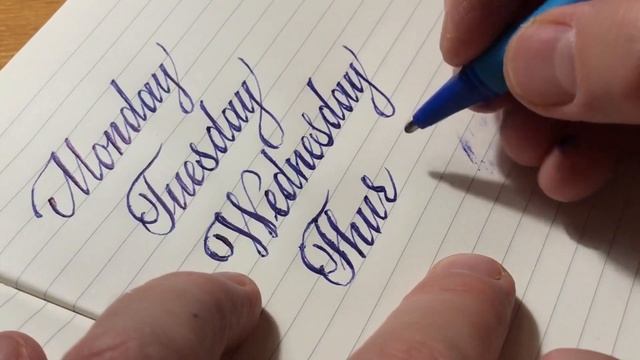 Monday
Tuesday
Wednesday
Thur